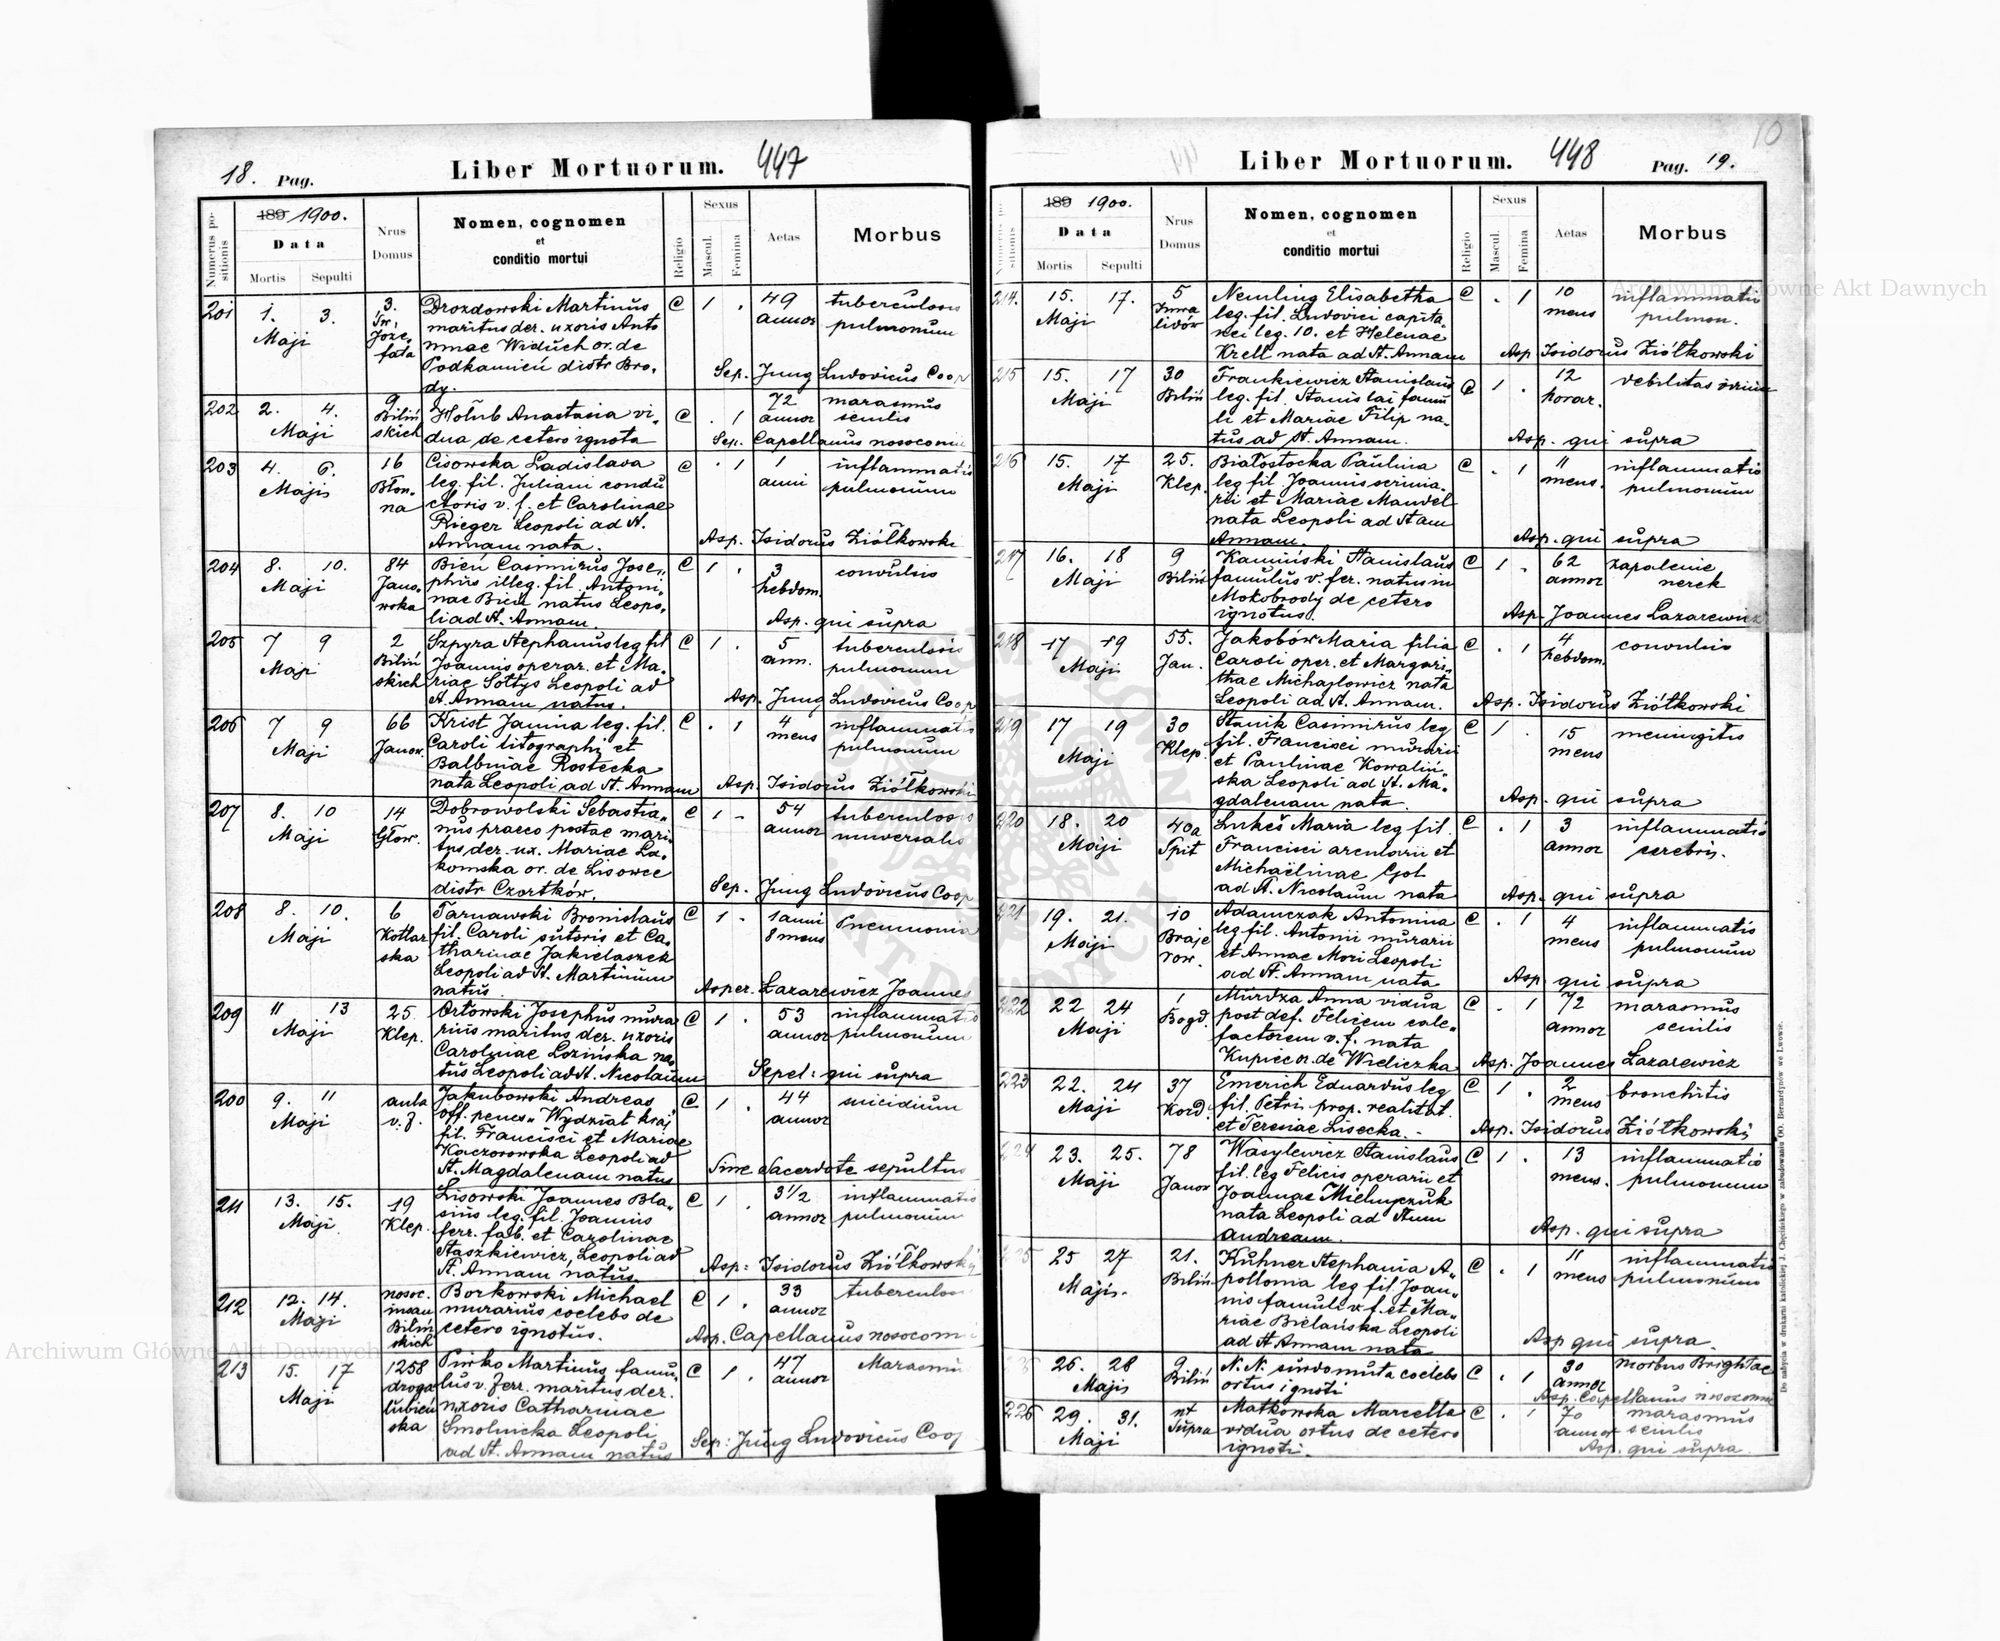 18. Pag.
Liber Mortuorum.
447
Numerus positionis
189 1900.
Data
Mortis Sepulti
Nrus Domus
Nomen, cognomen
et
conditio mortui
Religio
Sexus
Mascul.
Femina
Aetas
Morbus
201 1. 3. Maji 3. Św. Joze, fata
Drozdowski Martinus
maritus der. uxoris Anto
ninae Widuch or. de
Podkamień distr Bro,
dy.
C 1 . 49 annor tuberculosis pulmonum
Sep. Jung Ludovicus Coop
202 2. 4. Maji 9 Biliń skich
Hołub Anastasia vi,
dua de cetero ignota
C . 1 72 annor marasmus senilis
Sep. Capellanus nosocomii
203 4. 6. Majis 16 Błon, na
Cisowska Ladislava
leg. fil. Juliani condu
ctoris v. f. et Carolinae
Rieger Leopoli ad St.
Annam nata.
C . 1 1 anni inflammatio pulmonum
Asp. Isidorus Ziółkowski
204 8. 10. Maji 84 Jano, wska
Bień Casimirus Jose,
phus illeg. fil. Antoni,
nae Bień natus Leopo,
li ad St. Annam.
C 1 . 3 hebdom. convulsio
Asp. qui supra
205 7 9 Maji 2 Biliń skich
Szpyra Stephanus leg fil
Joannis operar. et Ma,
riae Sołtys Leopoli ad
St. Annam natus.
C 1 . 5 ann. tuberculosis pulmonum
Asp. Jung Ludovicus Coop
206 7 9 Maji 66 Janow.
Krist Janina leg. fil.
Caroli litographi et
Balbinae Rostecka
nata Leopoli ad St. Annam
C . 1 4 mens inflammatio pulmonum
Asp. Isidorus Ziółkowski
207 8. 10 Maji 14 Głow.
Dobrowolski Sebastia,
nus praeco postae mari,
tus der. ux. Mariae La,
komska or. de Lisowce
distr Czortków.
C 1 - 54 annor tuberculosis universalis
Sep. Jung Ludovicus Coop
208 8. 10. Maji 6 Kotlar ska
Tarnawski Bronislaus
fil. Caroli sutoris et Ca,
tharinae Jakielaszek
Leopoli ad St. Martinum
natus
C 1 - 1 anni 8 mens Pneumonia
Asper. Łazarewicz Joannes
209 11 13 Maji 25. Klep.
Orłowski Josephus mura
rius maritus der. uxoris
Carolinae Lozińska na,
tus Leopoli ad St. Nicolaum
C 1 . 53 annor inflammatio pulmonum
Sepel: qui supra
200 9. 11 Maji aula v. 7.
Jakubowski Andreas
off. penes "Wydział kraj"
fil. Francisci et Mariae
Kaczorowska Leopoli ad
St. Magdalenam natus
C 1 . 44 annor suicidium
Sine Sacerdote sepultus
211 13. 15. Maji 19 Klep.
Lisowski Joannes Bla,
sius leg. fil. Joannis
ferr. fab. et Carolinae
Staszkiewicz, Leopoli ad
St. Annam natus
C 1 . 3 1/2 annor inflammatio pulmonum
Asp: Isidorus Ziółkowski
212 12. 14. Maji nosoc. insan Biliń skich
Borkowski Michael
murarius coelebs de
cetero ignotus.
C 1 . 33 annor tuberculosis
Asp. Capellanus nosocomi
213 15. 17 Maji 1258 droga lubień ska
Pirko Martinus famu,
lus v. ferr. maritus der.
uxoris Catharinae
Smolnicka Leopoli
ad St. Annam natus
C 1 . 47 annor Marasmus
Sep: Jung Ludovicus Coop
10
Liber Mortuorum.
448
Pag. 19.
Numerus positionis
189 1900.
Data
Mortis Sepulti
Nrus Domus
Nomen, cognomen
et
conditio mortui
Religio
Sexus
Mascul.
Femina
Aetas
Morbus
214. 15. 17. Maji 5 Inwa lidów
Nemling Elisabetha
leg. fil. Ludovici capita,
nei leg. 10. et Helenae
Krell nata ad St. Annam
C . 1 10 mens inflammatio pulmon.
Asp. Isidorus Ziółkowski
215 15. 17 Maji 30 Biliń
Frankiewicz Stanislaus
leg. fil. Stanislai famu
li et Mariae Filip na,
tus ad St. Annam.
C 1 . 12 horar. debilitas
Asp. qui supra
216 15. 17 Maji 25. Klep.
Białostocka Paulina
leg fil. Joannis scrinia,
rii et Mariae Mandel
nata Leopoli ad Stam
Annam.
C . 1 11 mens. inflammatio pulmonum
Asp. qui supra
217 16. 18 Maji 9 Biliń
Kamiński Stanislaus
famulus v. fer. natus in
Mokobrody de cetero
ignotus.
C 1 . 62 annor zapalenie nerek
Asp. Joannes Lazarewicz
218 17 19 Maji 55. Jan.
Jakobów Maria filia
Caroli oper. et Margari,
thae Michajlowicz nata
Leopoli ad St. Annam.
C . 1 4 hebdom. convulsio
Asp. Isidorus Ziółkowski
219 17 19 Maji 30 Klep.
Stanik Casimirus leg
fil. Francisci murarii
et Paulinae Kowaliń,
ska Leopoli ad St. Ma,
gdalenam nata.
C 1 . 15 mens meningitis
Asp. qui supra
220 18. 20 Maji 40a Spit
Lukeś Maria leg fil.
Francisci arcularii et
Michaëlinae Gol
ad St. Nicolaum nata
C . 1 3 annor inflammatio cerebri.
Asp. qui supra
221 19. 21. Maji 10 Braje row.
Adamczak Antonina
leg fil. Antonii murarii
et Annae Mori Leopoli
ad St. Annam nata
C . 1 4 mens inflammatio pulmonum
Asp. qui supra
222 22 24 Maji 1 Bogd.
Murdza Anna vidua
post def. Felicem cale,
factorem v. f. nata
Kupiec or. de Wieliczka
C . 1 72 annor marasmus senilis
Asp. Joannes Łazarewicz
223 22. 24 Maji 37 Kord.
Emerich Eduardus leg
fil. Petri prop. realitat.
et Teresiae Lisecka.
C 1 . 2 mens bronchitis
Asp. Isidorus Ziółkowski
224 23. 25. Maji 78 Janow
Wasylewicz Stanislaus
fil. leg Felicis operarii et
Joannae Mielniczuk
nata Leopoli ad Stum
Andream.
C 1 . 13 mens. inflammatio pulmonum
Asp. qui supra
225 25 27 Majis. 21. Biliń
Kuhner Stephania A,
pollonia leg fil. Joan,
nis famuli v. f. et Ma,
riae Bielańska Leopoli
ad St Annam nata
C . 1 11 mens inflammatio pulmonum
Asp qui supra.
26. 28 Majis 9 Biliń
N. N. surdomuta coelebs
ortus ignoti
C . 1 30 annor Morbus Brightae
Asp. Capellanus nosocomii
226 29. 31. Maji ut supra
Matkowska Marcella
vidua ortus de cetero
ignoti.
C . 1 70 annor marasmus senilis
Asp. qui supra.
Do nabycia w drukarni katolickiej J. Chęcińskiego w zabudowaniu OO. Bernardynów we Lwowie.
Archiwum Główne Akt Dawnych
Archiwum Główne Akt Dawnych